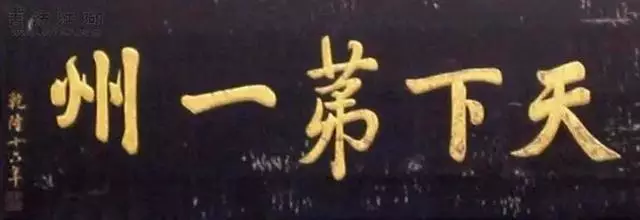 天下苐一州
乾隆十六年